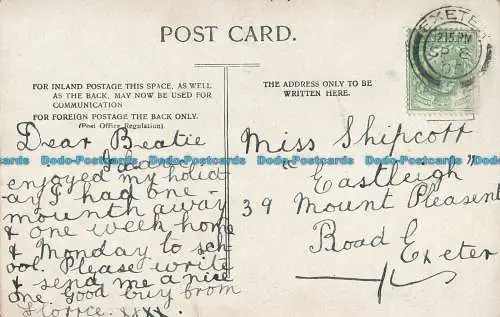 POST CARD.
EXETER
12.15 PM
FOR INLAND POSTAGE THIS SPACE, AS WELL
AS THE BACK, MAY NOW BE USED FOR
COMMUNICATION
FOR FOREIGN POSTAGE THE BACK ONLY.
(Post Office Regulation).
THE ADDRESS ONLY TO BE
WRITTEN HERE.
Dear Beatie
I have
enjoyed my holid
ay I had one
mounth away
& one week home
& Monday to sch
ool. Please write
& send me a nice
one. Good buy from
Florrce. xxxx.
Miss Shipcott
"Eastleigh"
39 Mount Pleasent
Road
Exeter
Dado-Postcards Dado-Postcards Dado-Postcards Dado-Postcards Dado-Postcards